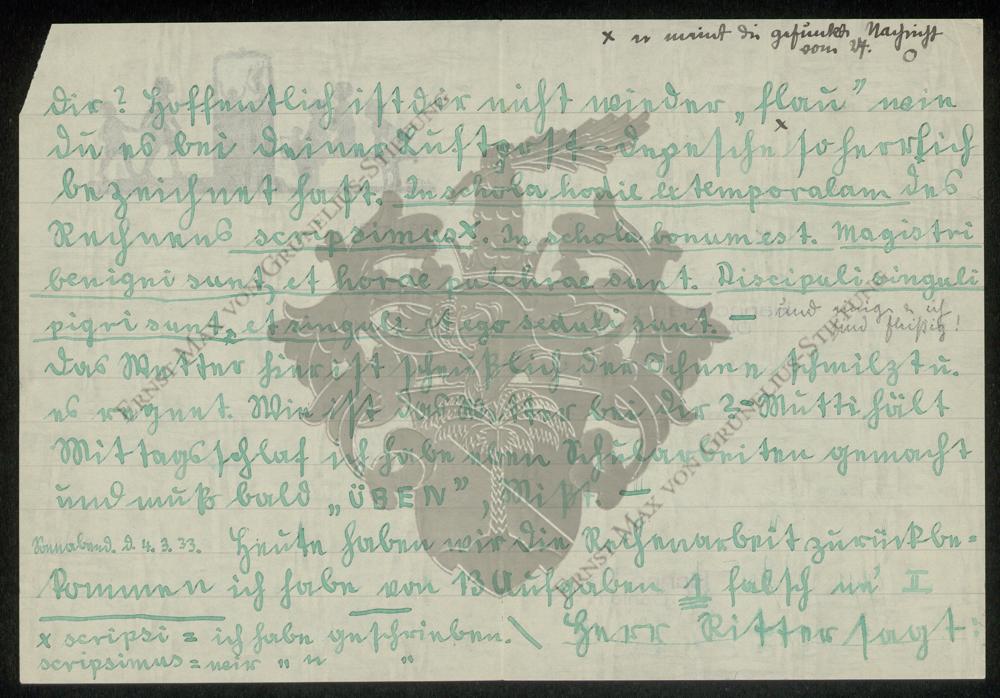 x er meint die gefunkte Nachricht
vom 27.
dir? Hoffentlich ist dir nicht wieder „flau" wie
du es bei deiner Luftpost-depesche x so herrlich
bezeichnet hast. In schola hodie extemporalam des
Rechnens scripsimus x. In schola bonum est. Magistri
benigni sunt, et horae pulchrae sunt. Discipuli singuli
pigri sunt, et singuli et ego seduli sunt. —
und einige & ich
sind fleißig!
das Wetter hier ist scheußlich der Schnee schmilzt u.
es regnet. Wie ist das Wetter bei dir? Mutti hält
Mittagsschlaf ich habe eben Schularbeiten gemacht
und muß bald „ÜBEN", Mist. —
Sonnabend. d. 4. 3. 33. Heute haben wir die Rechenarbeit zurückbe-
kommen ich habe von 13 Aufgaben 1 falsch ne' II
x scripsi = ich habe geschrieben. \ Herr Ritter sagt:
scripsimus = wir " "
ERNST MAX VON GRUNELIUS-STIFTUNG
ERNST MAX VON GRUNELIUS-STIFTUNG